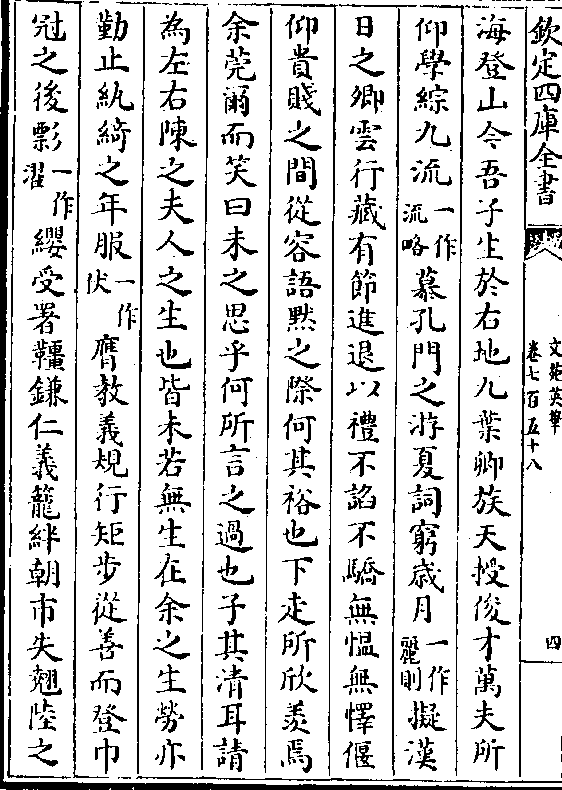 欽定四庫全書
文苑英華
卷七百五十八
四
海登山今吾子生於右地九葉卿族天授俊才萬夫所
仰學綜九流一作流略慕孔門之游夏詞窮歲月一作麗則擬漢
日之卿雲行藏有節進退以禮不諂不驕無慍無懌偃
仰貴賤之間從容語默之際何其裕也下走所欣羨焉
余莞爾而笑曰未之思乎何所言之過也子其清耳請
為左右陳之夫人之生也皆未若無生在余之生勞亦
勤止紈綺之年服一作伏膺教義規行矩步從善而登巾
冠之後影一作濯纓受署韁鎌仁義籠絆朝市失翹陸之